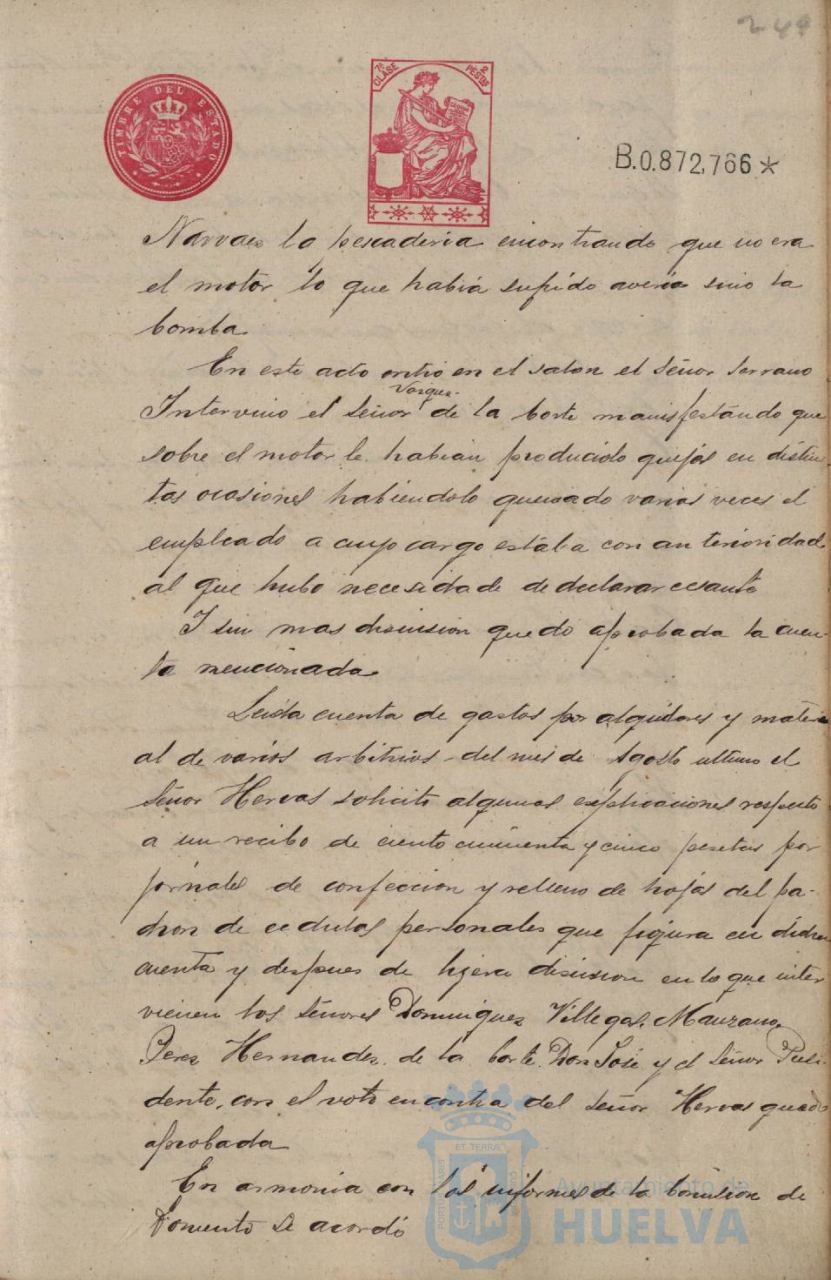 249
TIMBRE DEL ESTADO
7ª CLASE 2 PESTAS
B.0.872,766*
Narvaez la pescaderia encontrando que no era
el motor lo que habia sufrido averia sino la
bomba
En este acto entró en el salon el señor Serrano
Vazquez
Intervino el Señor de la Corte manifestando que
sobre el motor le habian producido quejas en distin
tas ocasiones habiendolo quemado varias veces el
empleado a cuyo cargo estaba con anterioridad
al que hubo necesidad de declarar cesante
I sin mas discusion quedó aprobada la cuen
ta mencionada
Leida cuenta de gastos por alquileres y materi
al de varios arbitrios del mes de Agosto ultimo el
Señor Hervas solicito algunas explicaciones respecto
a un recibo de ciento cincuenta y cinco pesetas por
jornales de confeccion y relleno de hojas del pa-
dron de cedulas personales que figura en dicha
cuenta y despues de lijera discusion en lo que inter
vienen los Señores Dominguez Villegas, Manzano,
Perez Hernandez, de la Corte Don José y el Señor Presi-
dente, con el voto en contra del señor Hervas quedó
aprobada
En armonia con los informes de la Comision de
Fomento se acordó
ET TERRAE
Ayuntamiento de
HUELVA